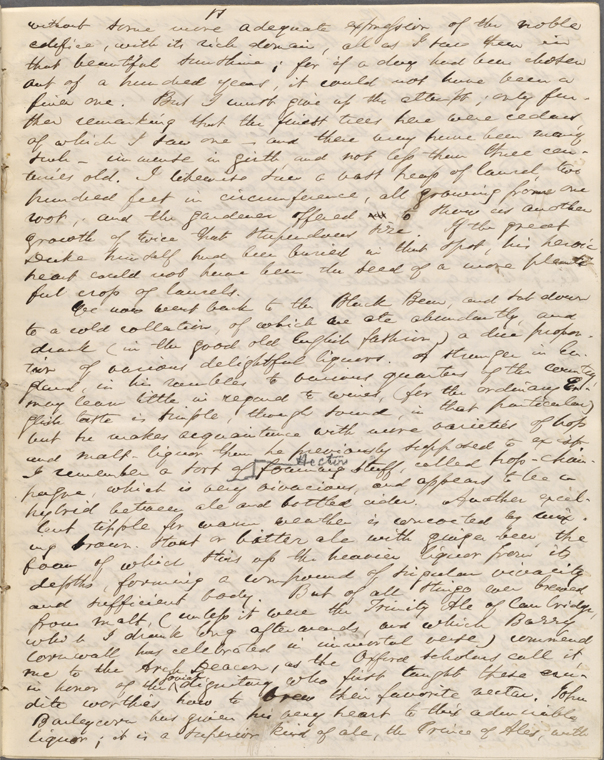 17
without some more adequate expression of the noble
edifice, with its rich domain, all as I saw them in
that beautiful sunshine; for if a day had been chosen
out of a hundred years, it could not have been a
finer one. But I must give up the attempt; only fur-
ther remarking that the finest trees here were cedars,
of which I saw one – and there may have been many
such – immense in girth and not less than three cen-
turies old. I likewise saw a vast heap of laurel, two
hundred feet in circumference, all growing from one
root; and the gardener offered to show us another
growth of twice that stupendous size. If the great
Duke himself had been buried in that spot, his heroic
heart could not have been the seed of a more plenti-
ful crop of laurels.
We now went back to the Black Bear, and sat down
to a cold collation, of which we ate abundantly, and
drank (in the good old English fashion) a due propor-
tion of various delightful liquors. A stranger in En-
gland, in his rambles to various quarters of the country,
may learn little in regard to wines, (for the ordinary En-
glish taste is simple, though sound, in that particular)
but he makes acquaintance with more varieties of hop
and malt liquor than he previously supposed to exist.
Hector
I remember a sort of foaming stuff, called hop-cham-
pagne, which is very vivacious, and appears to be a
hybrid between ale and bottled cider. Another excel-
lent tipple for warm weather is concocted by mix-
ing brown stout or bitter ale with ginger beer, the
foam of which stirs up the heavier liquor from its
depths, forming a compound of singular vivacity
and sufficient body. But of all things ever brewed
from malt, (unless it were the Trinity Ale of Cambridge,
which I drank long afterwards, and which Barry
Cornwall has celebrated in immortal verse) commend
me to the Arch Deacon, as the Oxford scholars call it,
in honor of the jovial dignitary who first taught these eru-
dite worthies how to brew their favorite nectar. John
Barleycorn has given his very heart to this admirable
liquor; it is a superior kind of ale, the Prince of Ales, with